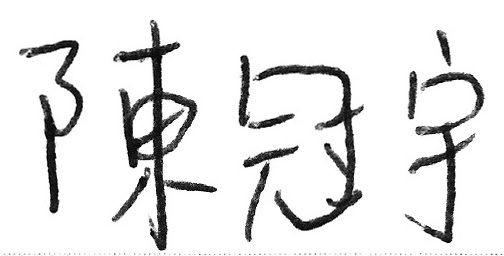 陳冠宇